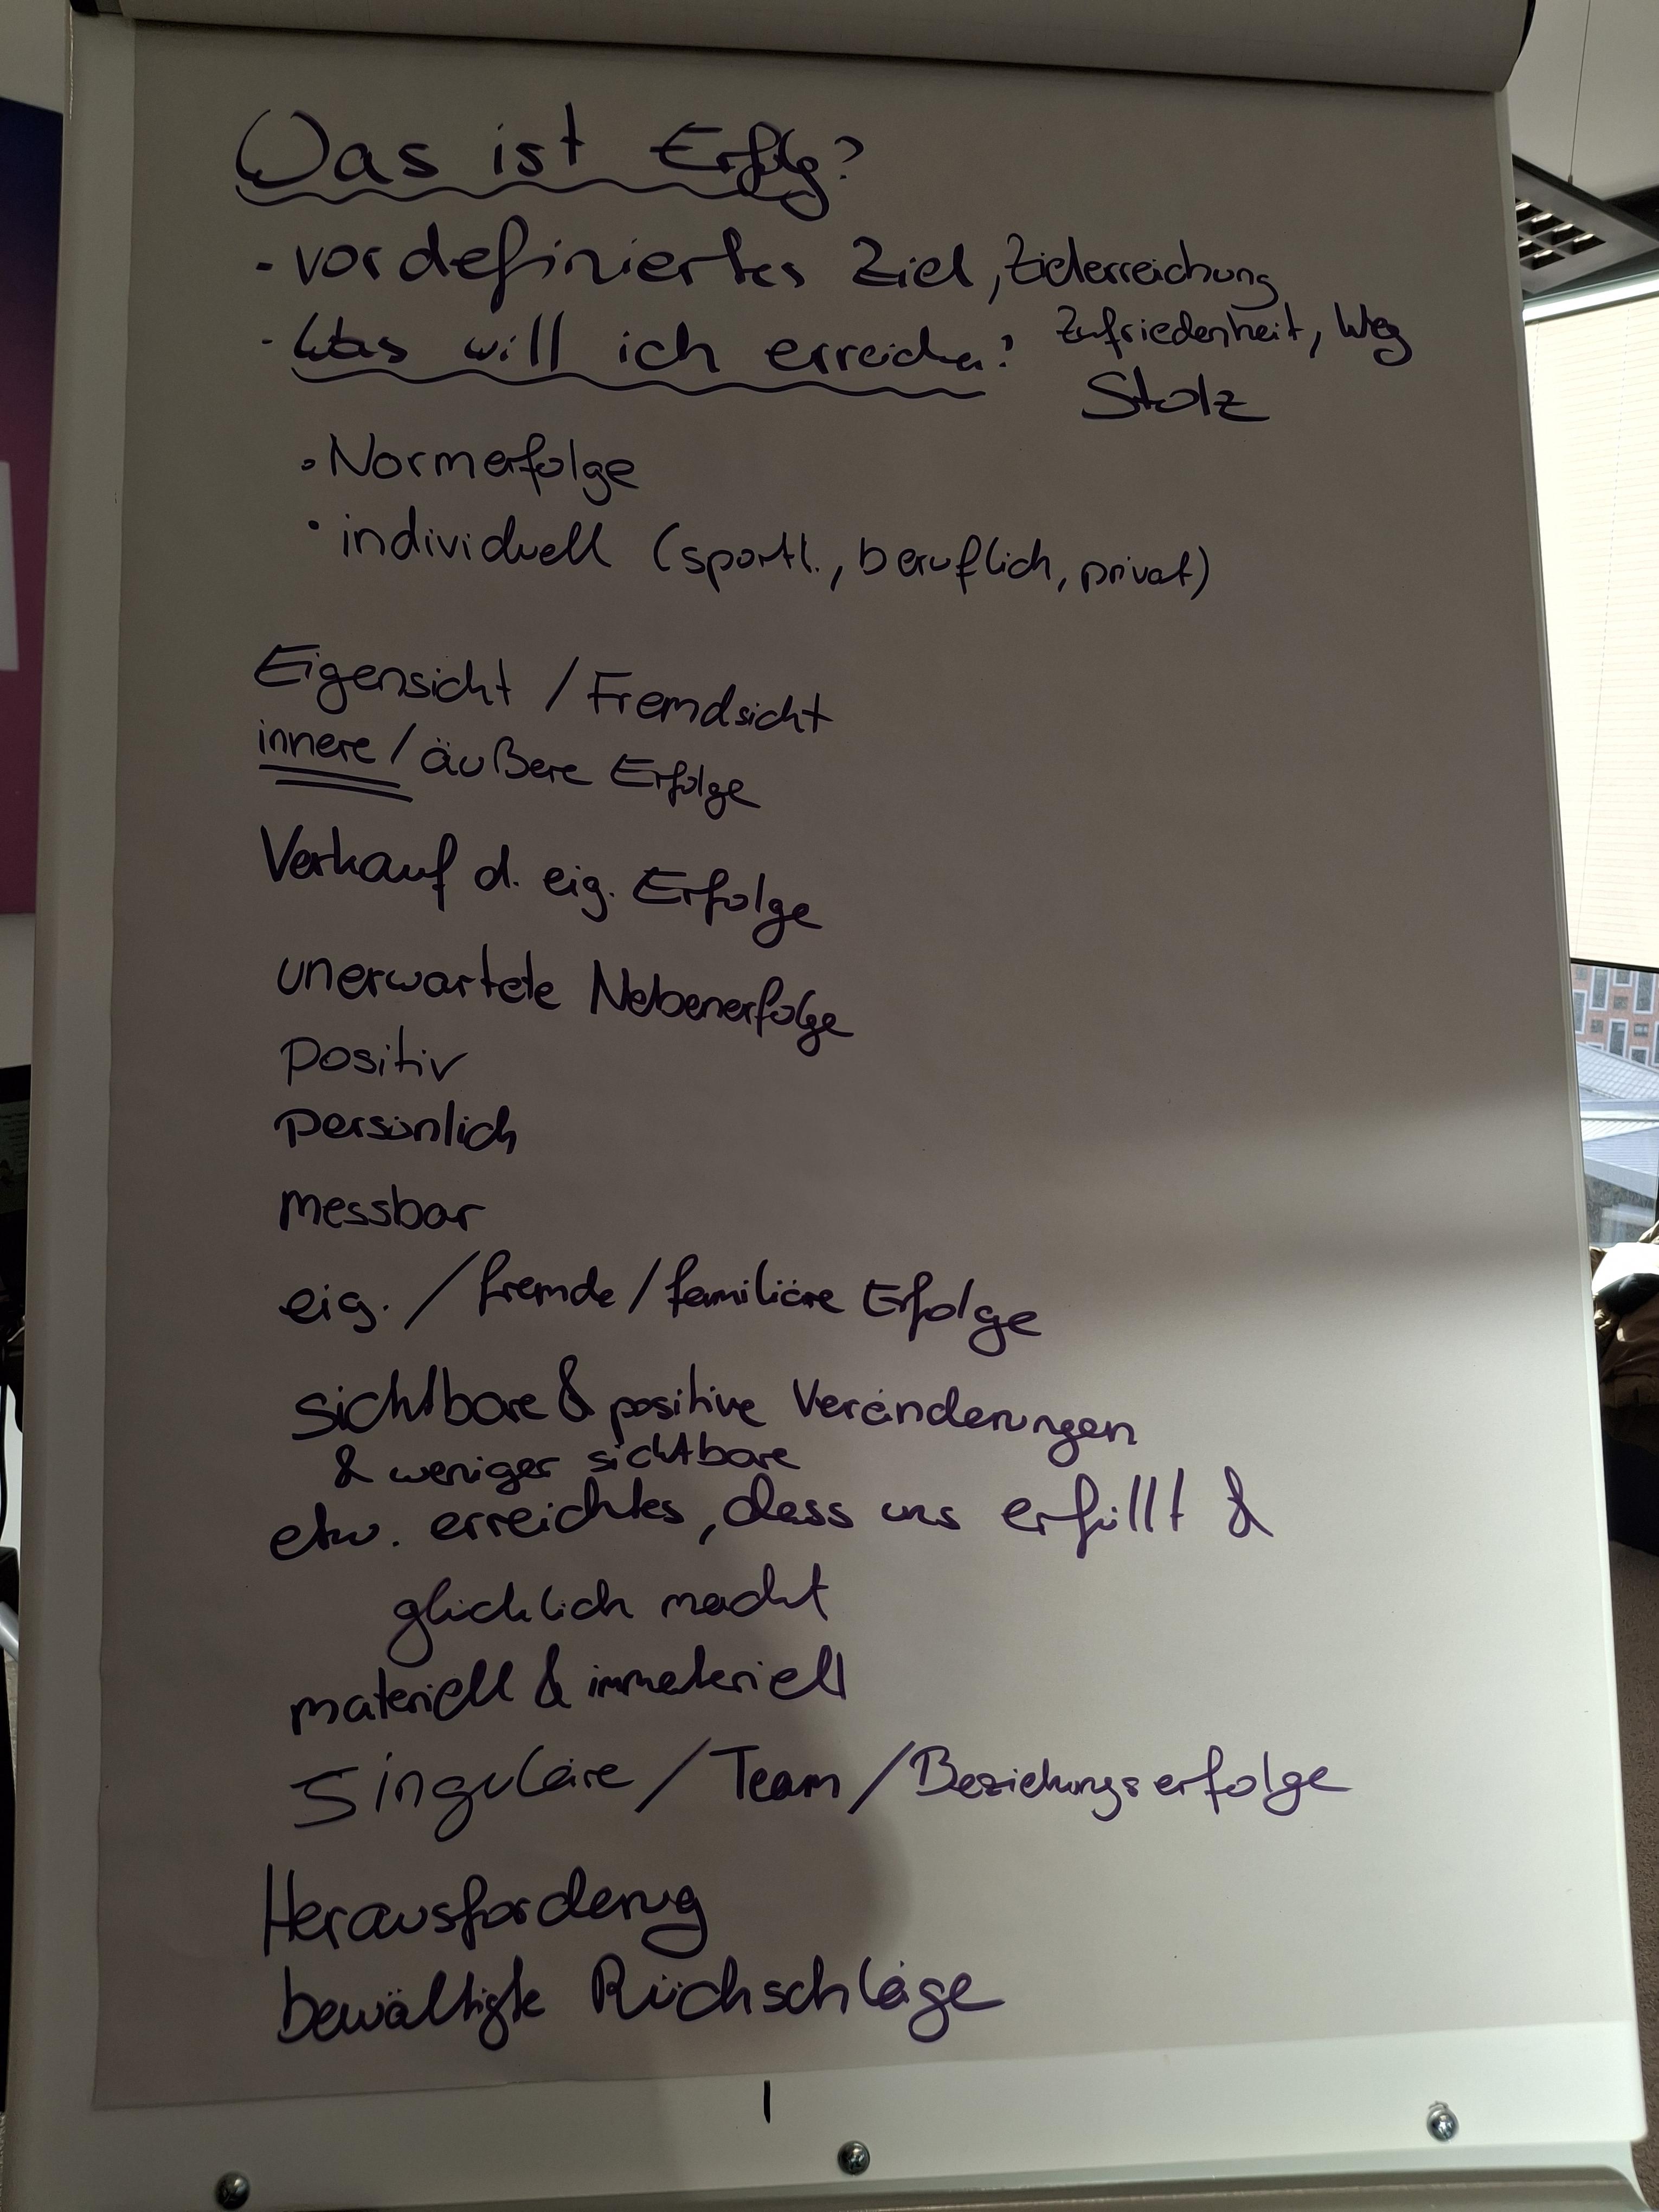 Was ist Erfolg?
- vordefiniertes Ziel, Zielerreichung
- Was will ich erreichen? Zufriedenheit, Weg
Stolz
• Normerfolge
• individuell (sportl., beruflich, privat)
Eigensicht / Fremdsicht
innere / äußere Erfolge
Verkauf d. eig. Erfolge
unerwartete Nebenerfolge
positiv
persönlich
messbar
eig. / fremde / familiäre Erfolge
sichtbare & positive Veränderungen
& weniger sichtbare
etw. erreichtes, dass uns erfüllt &
glücklich macht
materiell & immateriell
Singuläre / Team / Beziehungserfolge
Herausforderung
bewältigte Rückschläge